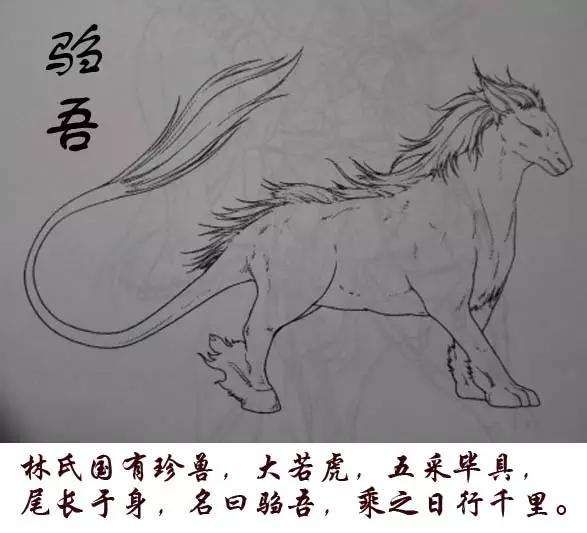 驺吾
林氏国有珍兽，大若虎，五采毕具，
尾长于身，名曰驺吾，乘之日行千里。